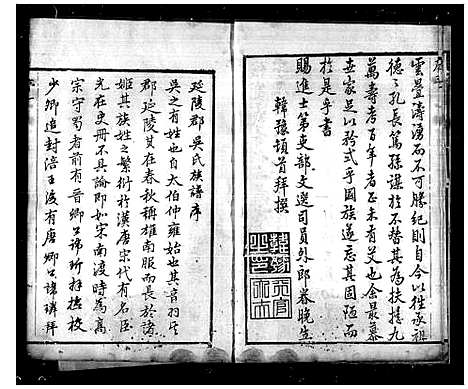 雲疊濤湧而不可勝紀則自今以往承祖
德之孔長篤孫謀於不替其為扶搖九
萬壽考百年者正未有艾也余最慕
世家足以矜式乎國族遂忘其固陋而
於是乎書
賜進士第吏部文選司員外郎眷晚生
韓 頓首拜撰
延陵郡吳氏族譜序
吳之有姓也自太伯仲雍始也其官羽其
郡延陵其在春秋稱雄南服而長於諸
姬其族姓之繁衍於漢唐宋代有名臣
光在史冊不具論即如宋南渡時為高
宗守蜀者前有晉卿公諱玠授檢校
少師追封涪王後有唐卿公諱璘拜